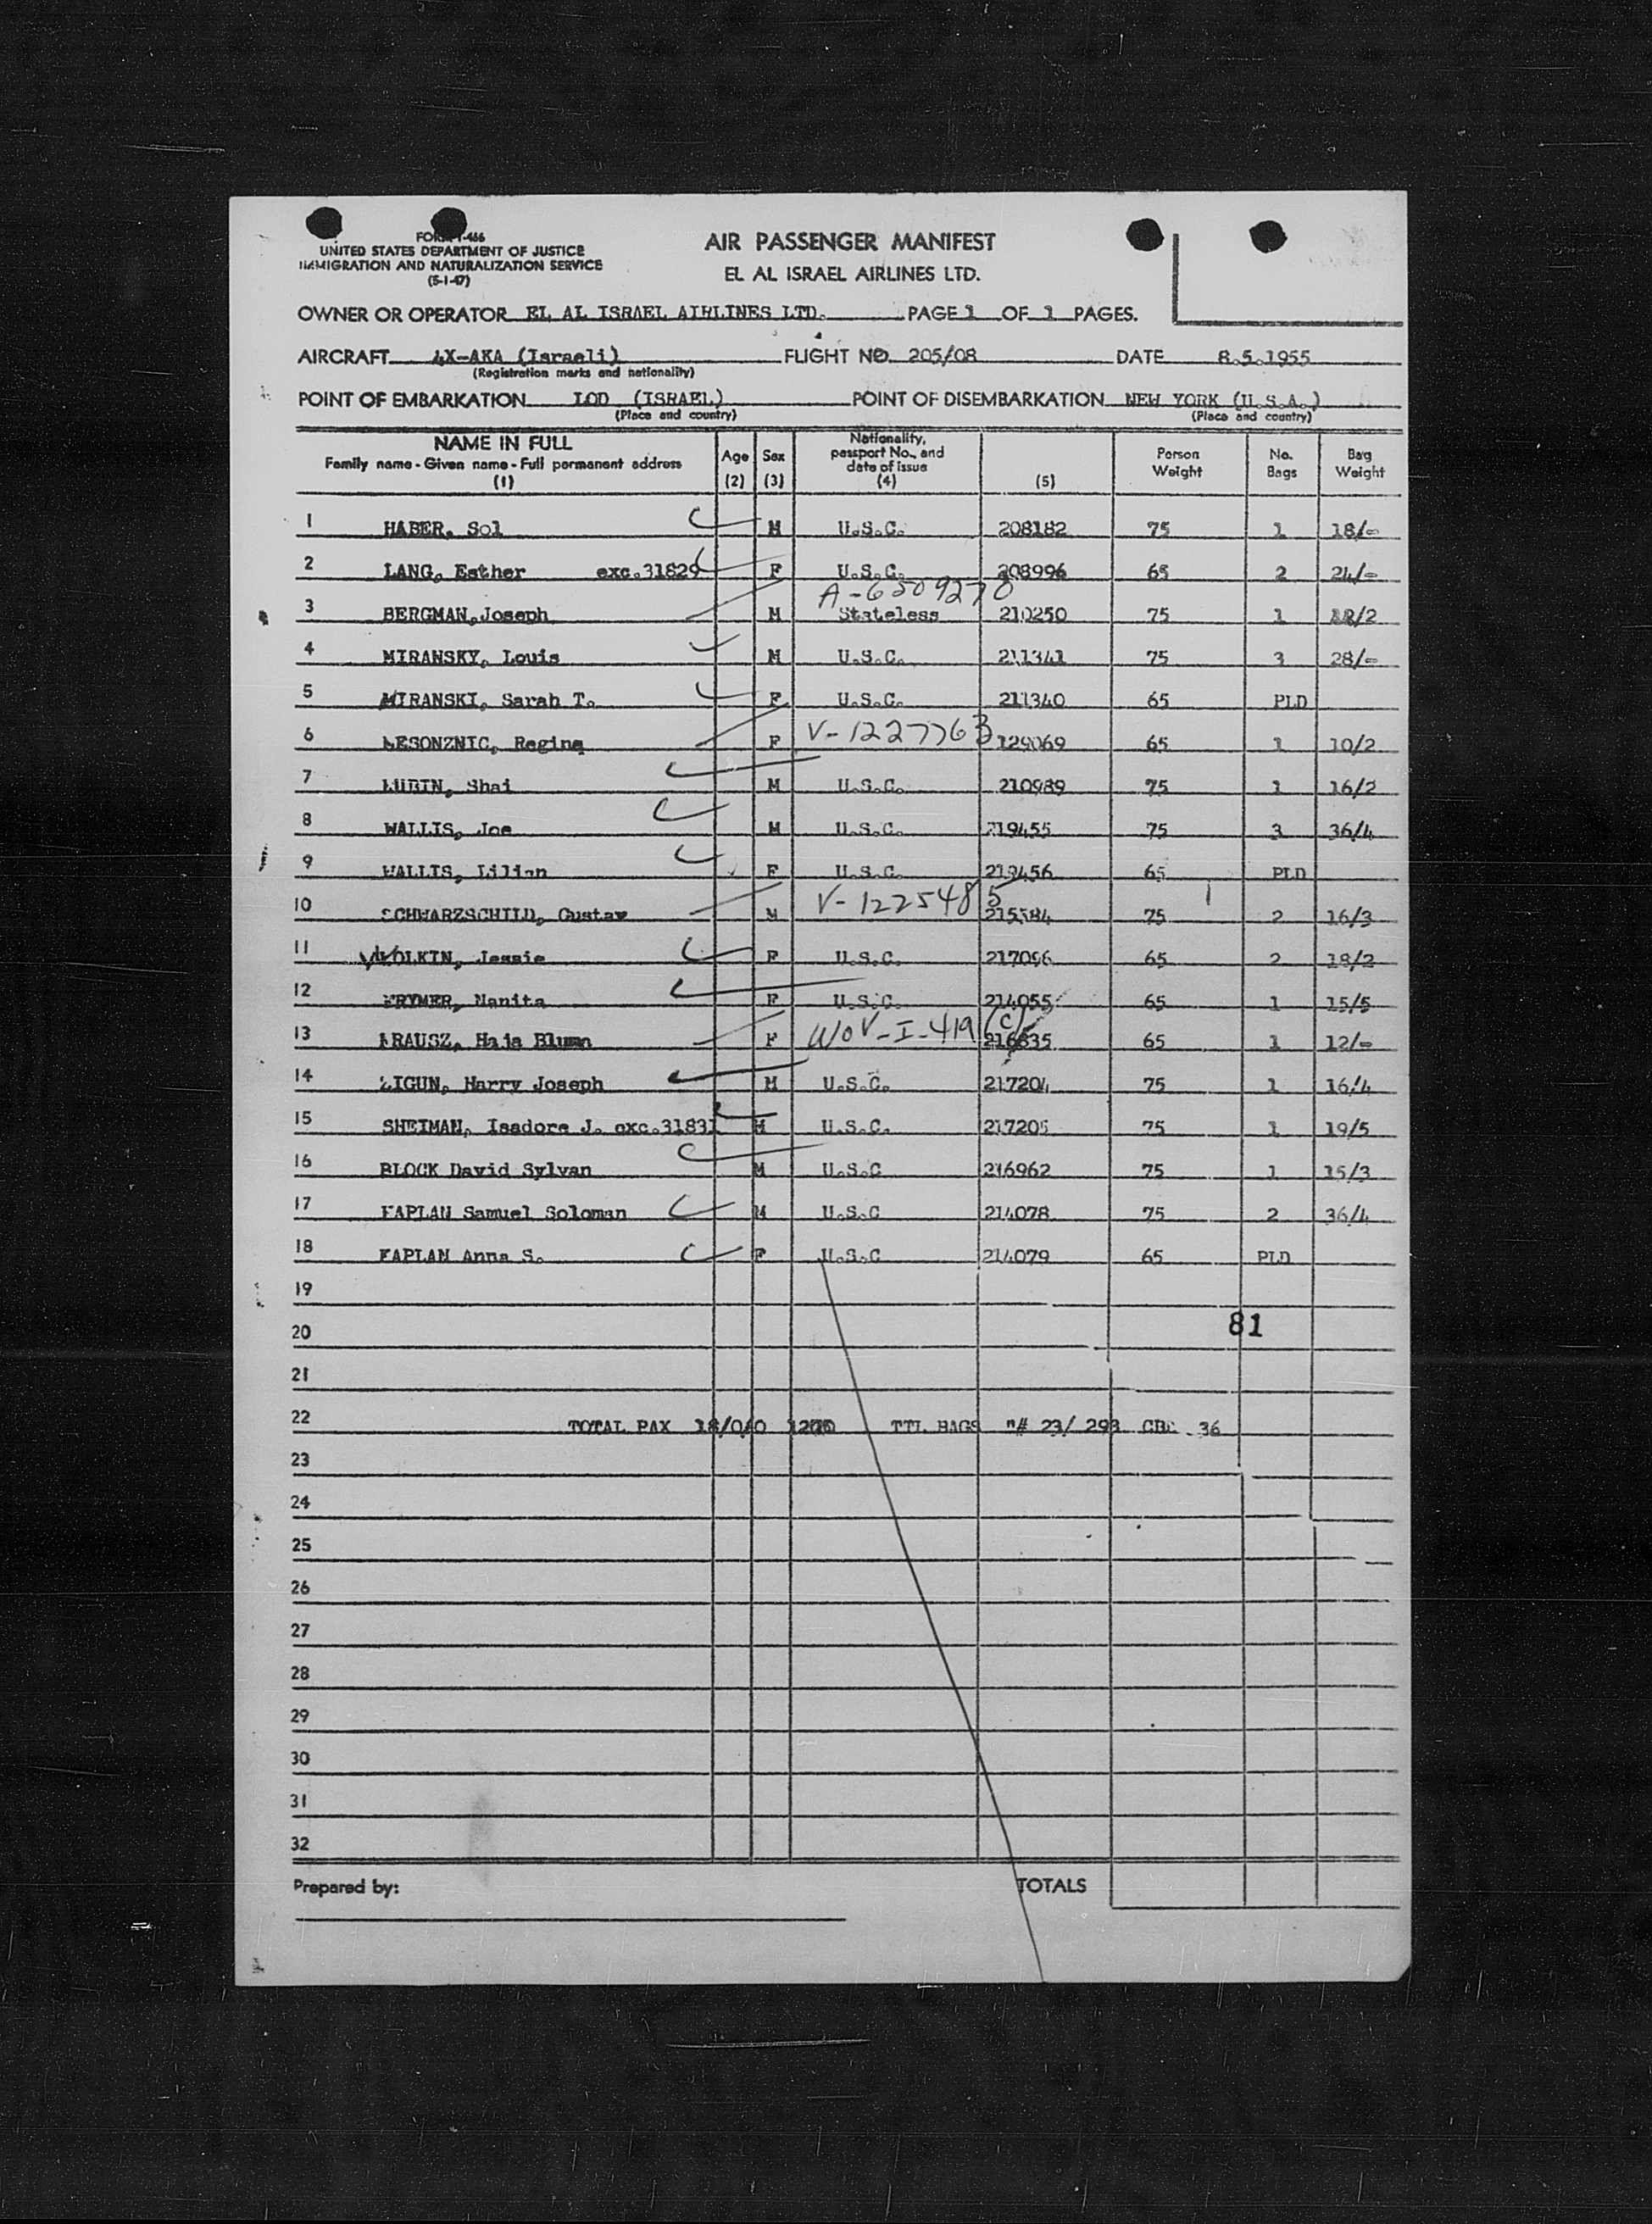 FORM I-466
UNITED STATES DEPARTMENT OF JUSTICE
IMMIGRATION AND NATURALIZATION SERVICE
(5-1-47)
AIR PASSENGER MANIFEST
EL AL ISRAEL AIRLINES LTD.
OWNER OR OPERATOR EL AL ISRAEL AIRLINES LTD. PAGE 1 OF 1 PAGES.
AIRCRAFT 4X-AKA (Israeli) FLIGHT NO. 205/08 DATE 8.5.1955
(Registration marks and nationality)
POINT OF EMBARKATION LOD (ISRAEL) POINT OF DISEMBARKATION NEW YORK (U.S.A.)
(Place and country) (Place and country)
NAME IN FULL
Family name - Given name - Full permanent address
(1)
Age
(2)
Sex
(3)
Nationality,
passport No., and
date of issue
(4)
(5)
Person
Weight
No.
Bags
Bag
Weight
1 HABER, Sol M U.S.C. 208182 75 1 18/-
2 LANG, Esther exc.31829 F U.S.C. 208996 65 2 24/-
A-6509270
3 BERGMAN, Joseph M Stateless 210250 75 1 /2
4 MIRANSKY, Louis M U.S.C. 211341 75 3 28/-
5 MIRANSKI, Sarah T. F U.S.C. 211340 65 PLD
6 Regina F V-1227763 129069 65 1 10/2
7 LUBIN, Shai M U.S.C. 210989 75 1 16/2
8 WALLIS, Joe M U.S.C. 219455 75 3 36/4
9 WALLIS, Lilian F U.S.C. 219456 65 PLD
10 SCHWARZSCHILD, Gustav M V-1225485 215584 75 2 16/3
11 WOLKIN, Jessie F U.S.C. 217096 65 2 18/2
12 Manita F U.S.C. 214055 65 1 15/5
13 KRAUSZ, Haja Bluma F WOV-I-419(c) 216835 65 1 12/-
14 ZIGUN, Harry Joseph M U.S.C. 217204 75 1 16/4
15 SHEIMAN, Isadore J. exc.31831 M U.S.C. 217205 75 1 19/5
16 BLOCK David Sylvan M U.S.C 216962 75 1 15/3
17 KAPLAN Samuel Soloman M U.S.C 214078 75 2 36/4
18 KAPLAN Anna S. F U.S.C 214079 65 PLD
19
20 81
21
22 TOTAL PAX 18/0/0 TTL BAGS 23/ 298 36
23
24
25
26
27
28
29
30
31
32
Prepared by: TOTALS